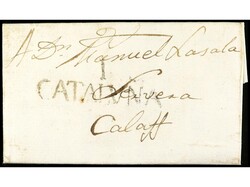 A Dn. Manuel Lasala
1
CATALVÑA
Servera
Calaff